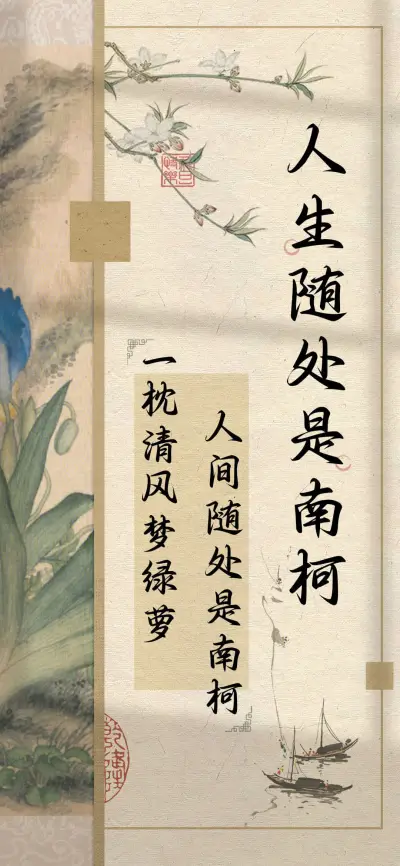 人生随处是南柯
人间随处是南柯
一枕清风梦绿萝